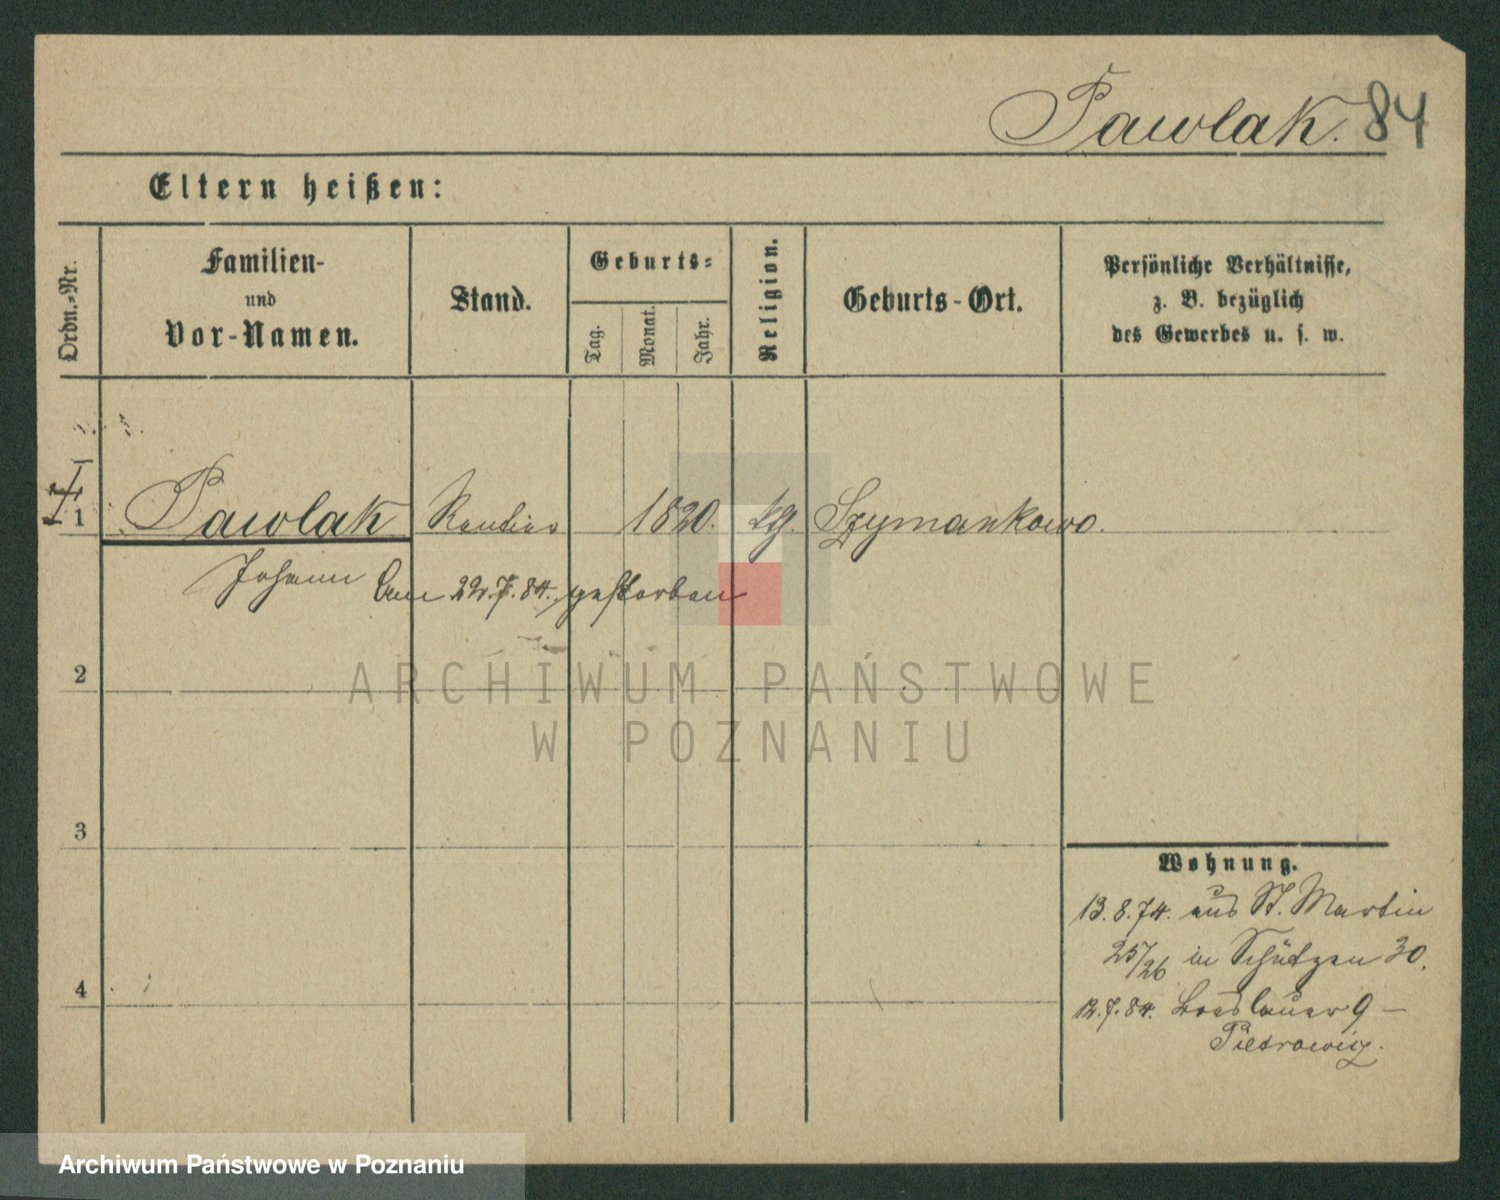 Pawlak. 84
Eltern heißen:
Ordn.-Nr.
Familien-
und
Vor-Namen.
Stand.
Geburts-
Tag.
Monat.
Jahr.
Religion.
Geburts-Ort.
Persönliche Verhältnisse,
z. B. bezüglich
des Gewerbes u. s. w.
1 Pawlak Rentier 1820. kg. Szymankowo.
Johann am 22.7.84. gestorben
2
3
4
Wohnung.
13.8.74. aus St. Martin
25/26 in Schützen 30.
12.7.84. Breslauer 9 –
Pietrowicz.
ARCHIWUM PAŃSTWOWE
W POZNANIU
Archiwum Państwowe w Poznaniu